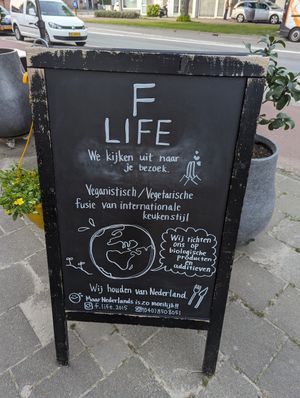 F
LIFE
We kijken uit naar
je bezoek.
Veganistisch/Vegetarische
fusie van internationale
keukenstijl
Wij richten
ons op
biologische
producten
en
additieven
Wij houden van Nederland
Maar Nederlands is zo moeilijk!!
f.life.2015